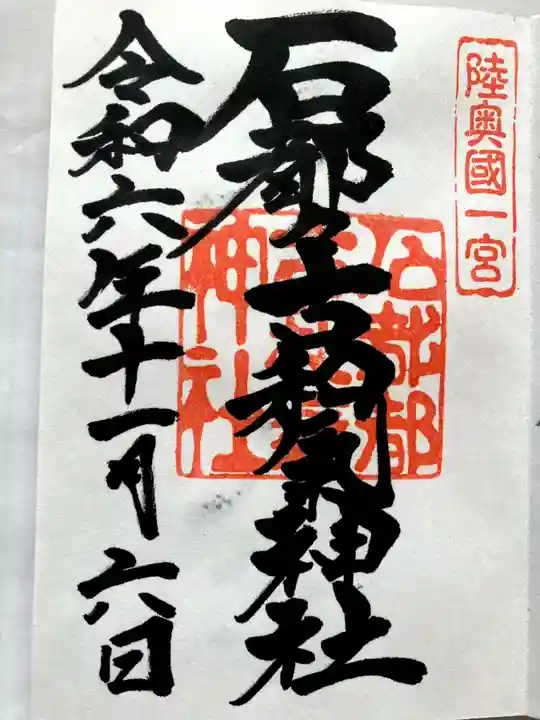 陸奥國一宮
石都々古和氣神社
石都都
神社
令和六年十一月六日